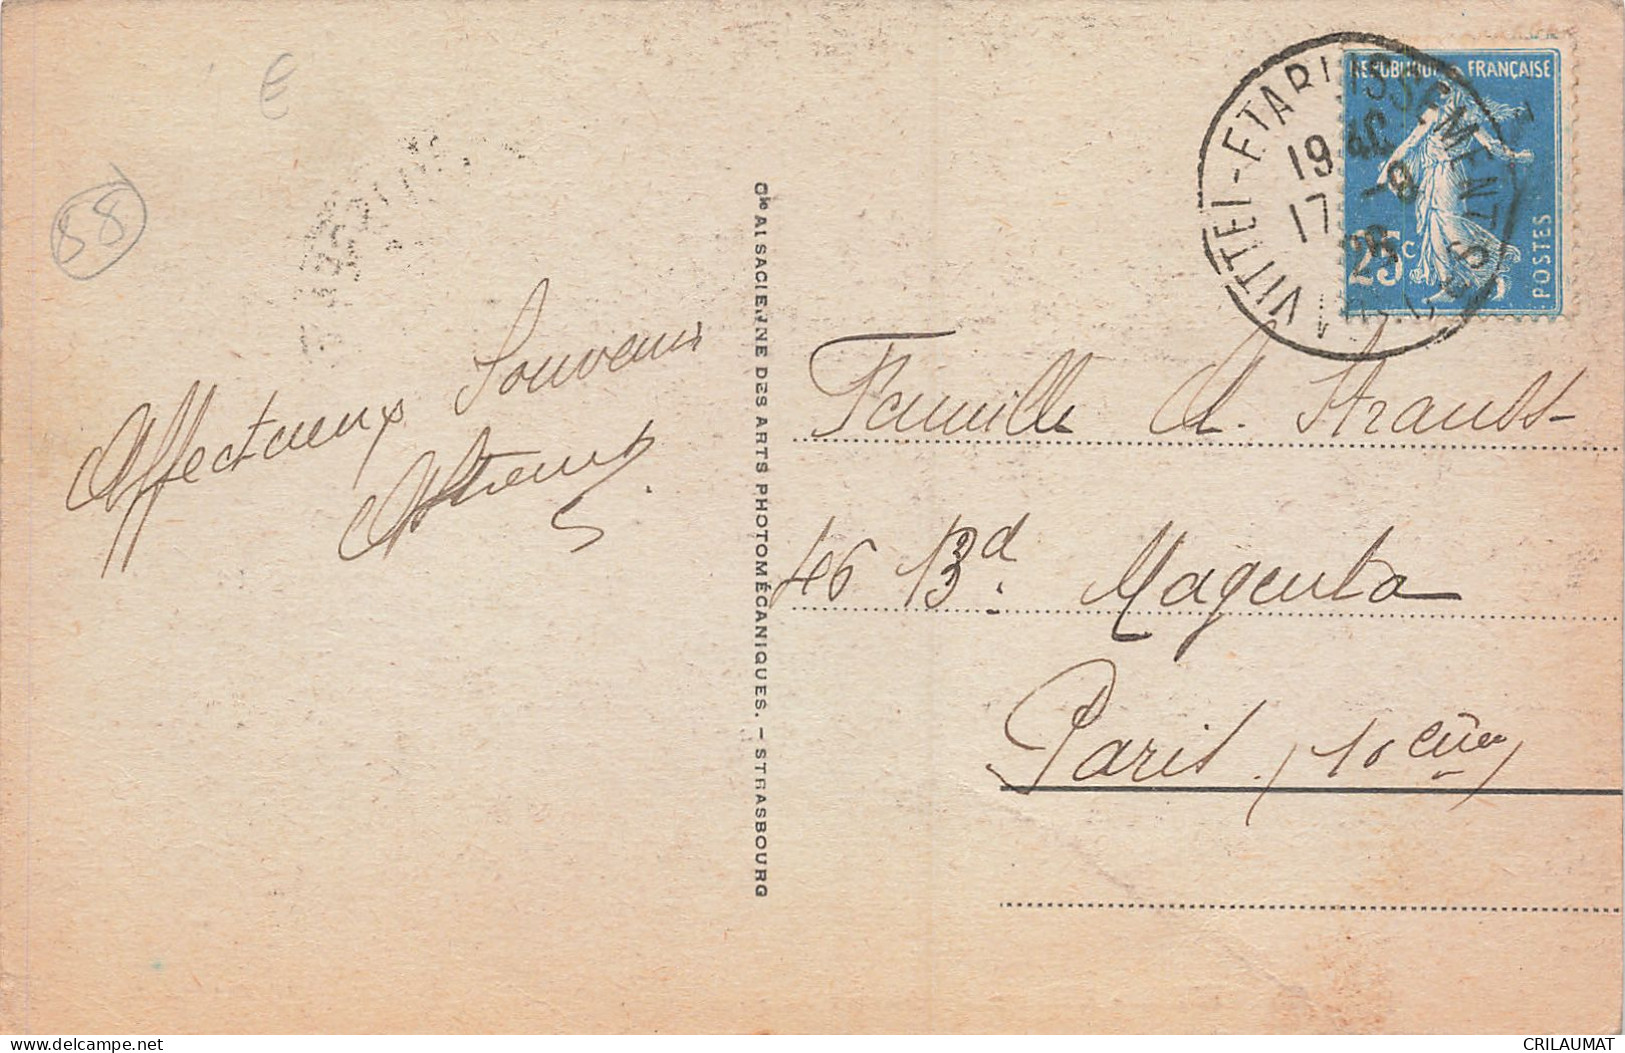 88
Affectueux Souvenir
Famille A. Strauss
46 Bd. Magenta
Paris (10ème)
Cie ALSACIENNE DES ARTS PHOTOMÉCANIQUES. - STRASBOURG
VITTEL-ETABLISSEMENT
19
17 -8
REPUBLIQUE FRANÇAISE
25c
POSTES
delcampe.net
CRILAUMAT